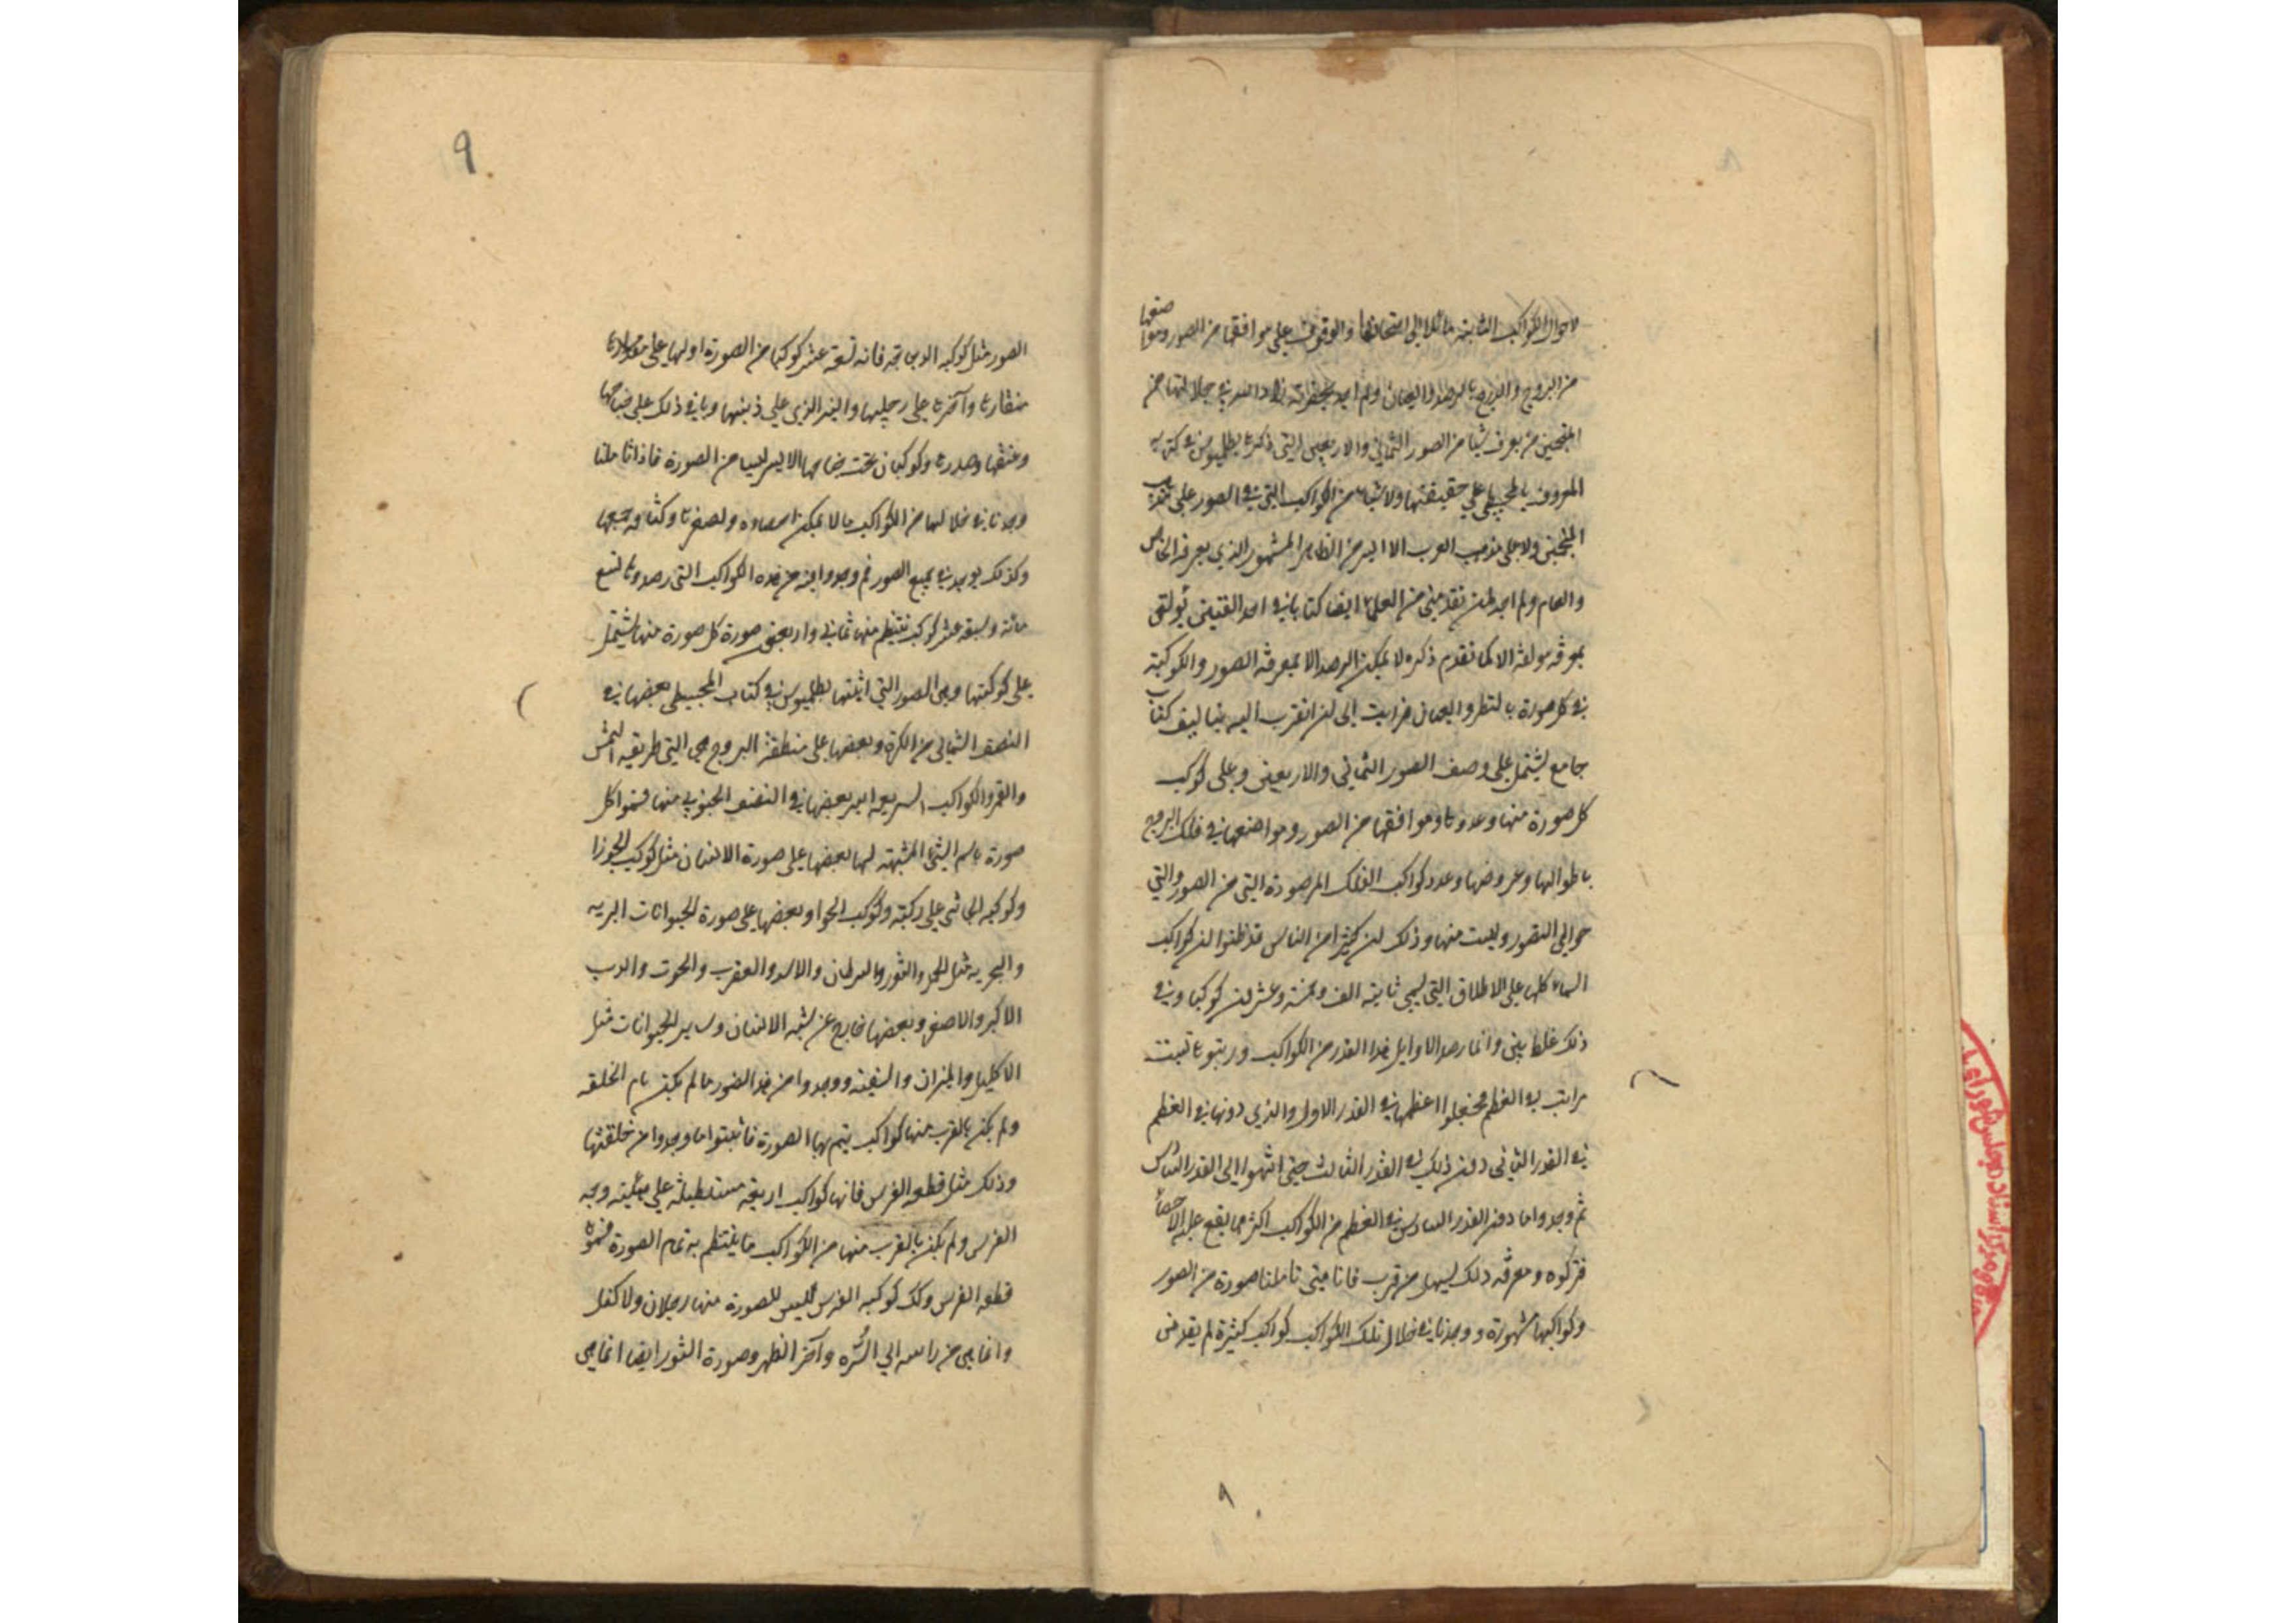 لاحوال الكواكب الثابتة مائلا الى امتحانها والوقوف على مواقعها من الصور ومواضعها
من البروج والدرج بالرصد والعيان ولم اجد بحضرته زاد الله في جلالتها من
المنجمين من يعرف شيا من الصور الثماني والاربعين التي ذكرها بطلميوس في كتابه
المعروف بالمجسطي على حقيقتها ولا شيا من الكواكب التي في الصور على مذهب
المنجمين ولا على مذهب العرب الا اليسير من الظاهر المشهور الذي يعرفه الخاص
والعام ولم اجد لمن تقدمني من العلماء ايضا كتابا في احد الفنين يوثق
بمعرفة مولفه الا كما تقدم ذكره لا يمكن الرصد الا بمعرفة الصور والكوكبة
في كل صورة بالنظر والعيان فرايت الى ان اتقرب اليه بتاليف كتاب
جامع يشتمل على وصف الصور الثماني والاربعين وعلى كوكب
كل صورة منها وعددها ومواقعها من الصور ومواضعها في فلك البروج
باطوالها وعروضها وعدد كواكب الفلك المرصودة التي من الصور والتي
حوالي الصور وليست منها وذلك لان كثيرا من الناس قد ظنوا ان كواكب
السماء كلها على الاطلاق التي تسمى ثابتة الف وخمسة وعشرون كوكبا وفي
ذلك غلط بين وانما رصد الاوايل هذا القدر من الكواكب ورتبوها ست
مراتب في العظم فجعلوا اعظمها في القدر الاول والذي دونها في العظم
في القدر الثاني دون ذلك في القدر الثالث حتى انتهوا الى القدر السادس
ثم وجدوا ما دون القدر السادس في العظم من الكواكب اكثر مما يقع عليه الاحصاء
فتركوه ومعرفة ذلك يسهل من قرب فانا متى تاملنا صورة من الصور
وكواكبها مشهورة ووجدنا في خلال تلك الكواكب كواكب كثيرة لم يعد من
٨
٩
الصور مثل كوكبة الدجاجة فانه تسعة عشر كوكبا من الصورة اولها على
منقارها وآخرها على رجليها والنير الذي على ذنبها وباقي ذلك على جناحها
وعنقها وصدرها وكوكبان تحت جناحها الايسر ليسا من الصورة فاذا تاملنا
وجدنا في خلالها من الكواكب ما لا يمكن احصاوه ولصغرها وكثافة جمعها
وكذلك يوجد في جميع الصور ثم وجدوا من هذه الكواكب التي رصدوها تسع
مائة وسبعة عشر كوكب تنتظم منها ثماني واربعين صورة كل صورة منها يشتمل
على كوكبتها وهي الصور التي اثبتها بطلميوس في كتاب المجسطي بعضها في
النصف الشمالي من الكرة وبعضها على منطقة البروج هي التي طريقة الشمس
والقمر والكواكب السريعة السير بعضها في النصف الجنوبي منها فسموا كل
صورة باسم الشي المشبهة لها بعضها على صورة الانسان مثل كوكب الجوزا
وكوكبة الجاثي على ركبته وكوكب الحوا وبعضها على صورة الحيوانات البرية
والبحرية مثل الحمل والثور والسرطان والاسد والعقرب والحوت والدب
الاكبر والاصغر وبعضها خارج عن شبه الانسان وساير الحيوانات مثل
الاكليل والميزان والسفينة ووجدوا من هذا الصور ما لم يكن تام الخلقه
ولم يكن بالقرب منها كواكب يتم بها الصورة فاثبتوا ما وجدوا من خلقتها
وذلك مثل قطعة الفرس فانها كواكب اربعة مستطيلة على هيئته وجه
الفرس ولم يكن بالقرب منها من الكواكب ما ينتظم به تمام الصورة فسموه
قطعة الفرس وكذلك كوكبة الفرس فليس للصورة منها رجلان ولا كفل
وانما هي من راسه الى السره وآخر الظهر وصورة الثور ايضا انما هي